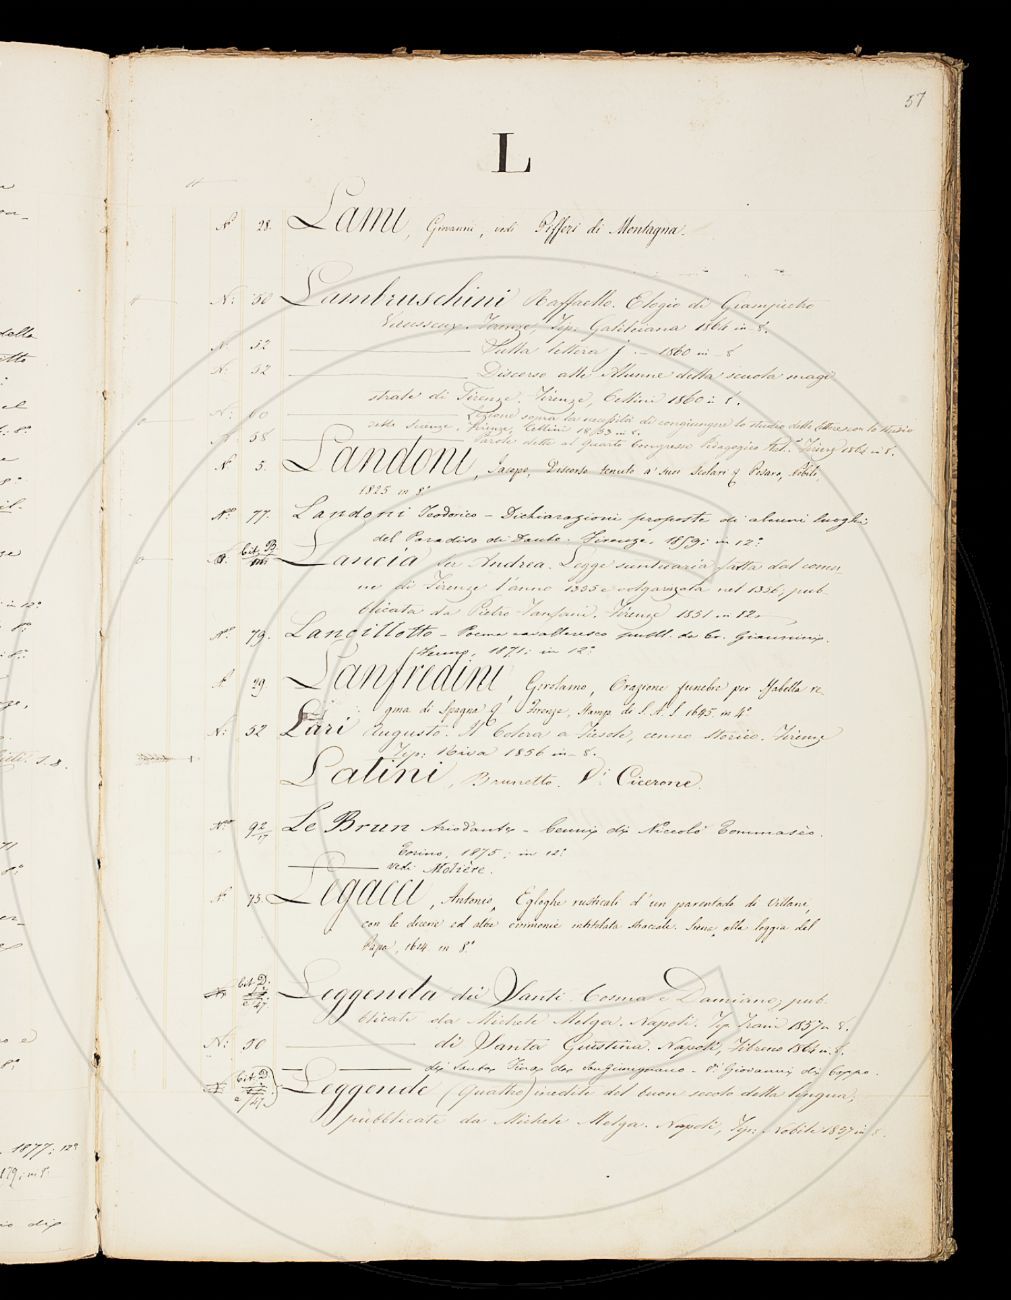 57
L
N° 28. Lami, Giovanni, vedi Pifferi di Montagna.
N: 50 Lambruschini Raffaello. Elogio di Giampietro
Vieusseux. Firenze, Tip. Galileiana 1864 in 8.
N. 52 Sulla lettera j — 1860 in 8
N: 52 Discorso alle Alunne della scuola magi
strale di Firenze. Firenze, Cellini 1860 in 8.
N: 60 Lezione sopra la necessità di congiungere lo studio delle lettere con lo studio
delle Scienze. Firenze, Cellini in 8.
N. 58 Parole dette al quarto Congresso Pedagogico Ital. Firenze 1864 in 8.
N° 5. Landoni, Jacopo, Discorso tenuto a' suoi Scolari Pesaro, Nobili,
1825 in 8°
N° 77. Landoni Teodorico — Dichiarazioni proposte di alcuni luoghi
del Paradiso di Dante. Firenze, 1859; in 12°
Lancia ser Andrea. Legge suntuaria fatta dal comu
ne di Firenze l'anno 1355 e volgarizzata nel 1356, pub-
blicata da Pietro Fanfani. Firenze 1851 in 12
N° 79. Lancillotto — Poema cavalleresco pubbl. da Cr. Giannini.
Fermo, 1871; in 12°
N° 29. Lanfredini, Girolamo, Orazione funebre per Isabella re-
gina di Spagna Firenze, Stamp. de S. A. S. 1645. in 4°
N: 52 Lari Augusto. Il Colera a Fiesole, cenno storico. Firenze
Tip: Riva 1856 in 8.
Latini, Brunetto. V: Cicerone.
N° 92/17 Le Brun Ariodante — Cenni di Niccolò Tommasèo.
Torino, 1875; in 12°
vedi Molière.
N° 75. Legacci, Antonio, Egloghe rusticali d'un parentado di Villani,
con le dicerie ed altre cirimonie intitolata Siena, alla loggia del
Papa, 1614 in 8°
Leggenda dei Santi Cosma e Damiano, pub-
blicata da Michele Melga. Napoli, Tip. Trani 1857 in 8.
N: 90 di Santa Giustina. Napoli, Fibreno 1864 in 8.
di Santa Fina da San Gimignano — V. Giovanni di Coppo.
Leggende (Quattro) inedite del buon secolo della lingua,
pubblicate da Michele Melga. Napoli, Tip: Nobile 1857 in 8.